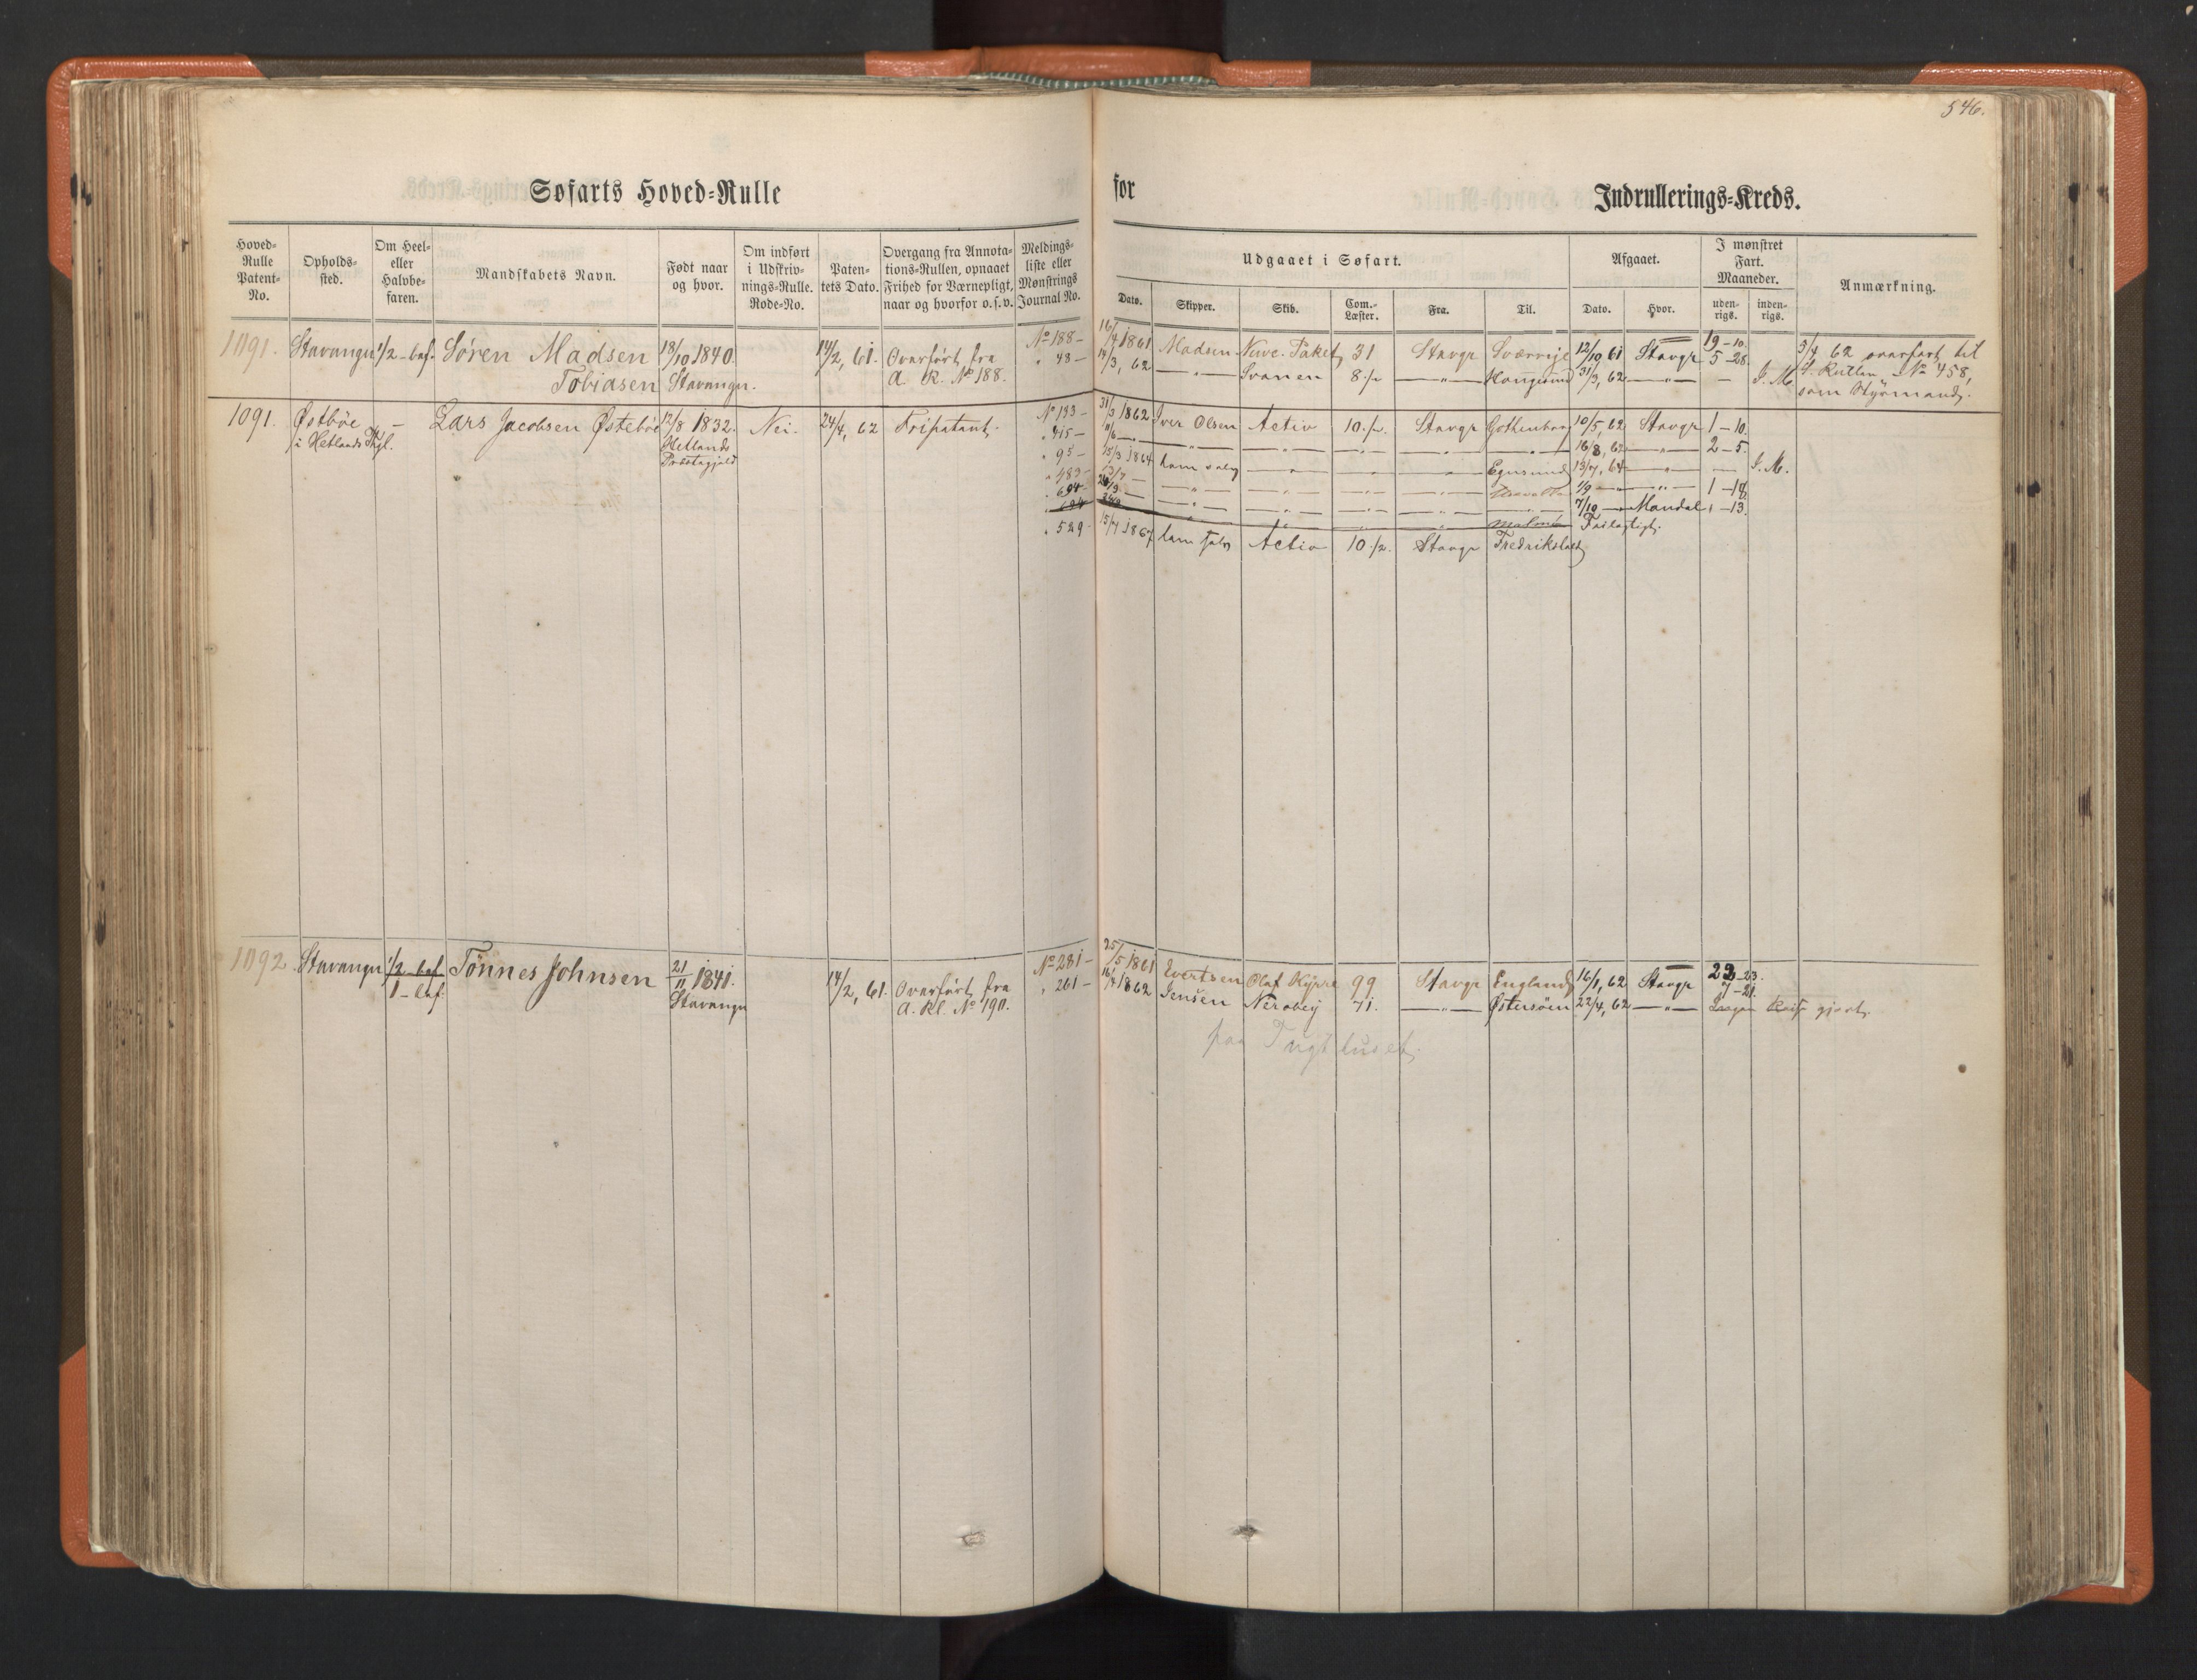 546.
Søfarts Hoved=Rulle for Indrullerings=Kreds.
Hoved=Rulle Patent=No.
Opholds=sted.
Om Heel= eller Halvbe=faren.
Mandskabets Navn.
Født naar og hvor.
Om indført i Udskriv=nings=Rulle. Rode=No.
Paten=tets Dato.
Overgang fra Annota=tions=Rullen, opnaaet Frihed for Værnepligt, naar og hvorfor o.s.v.
Meldings=liste eller Mønstrings Journal No.
Udgaaet i Søfart.
Dato.
Skipper.
Skib.
Com.=Læster.
Fra.
Til.
Afgaaet.
Dato.
Hvor.
I mønstret Fart. Maaneder.
uden=rigs.
inden=rigs.
Anmærkning.
1091. Stavanger 1/2-bef. Søren Madsen 18/10 1840. 14/2, 61. Overført fra No 188 - 16/4 1861 Madsen 31 Stavgr Sverrige 12/10 61 Stavgr 19-10. 3/4 62 overført til
Tobiasen Stavanger. A. R. No 188. " 48 - 14/3, 62 -"- Svanen 8 1/2 -"- Haugesund 31/3, 62 -"- - I. M. No 458,
5-28. som Styrmand.
1091. Østbøe - Lars Jacobsen Østebøe 12/8 1832. Nei. 24/4, 62 Fripatent. No 133 - 31/3 1862 Iver Olsen Activ 10 1/2. Stavgr Gothenborg 10/5, 62 Stavgr 1-10.
i Hetlands Hetlands Præstegjæld " 415 - -"- -"- -"- -"- -"- 16/8, 62 -"- 2-5.
" 95 - 15/3 1864 ham selv -"- -"- -"- Egersund 13/4, 64 -"- - I. M.
" 483 - -"- -"- -"- -"- 1/9 -"-
" 694 - -"- -"- -"- -"- 7/10 - Mandal 1-13.
" 529 - 15/7 1867 ham selv Activ 10 1/2. Stavgr Fredrikstad
1092. Stavanger 1/2-bef. Tönnes Johnsen 21/11 1841. 14/2, 61. Overført fra No 281 - 25/5 1861 Evertsen Olaf 99 Stavgr England 16/1, 62 Stavgr 23
1-bef. Stavanger A. Rl. No 190. " 261 - 16/4 1862 Jensen 71. -"- Østersøen 22/4, 62 -"- Ingen Reise gjort.
paa Tugthuset.